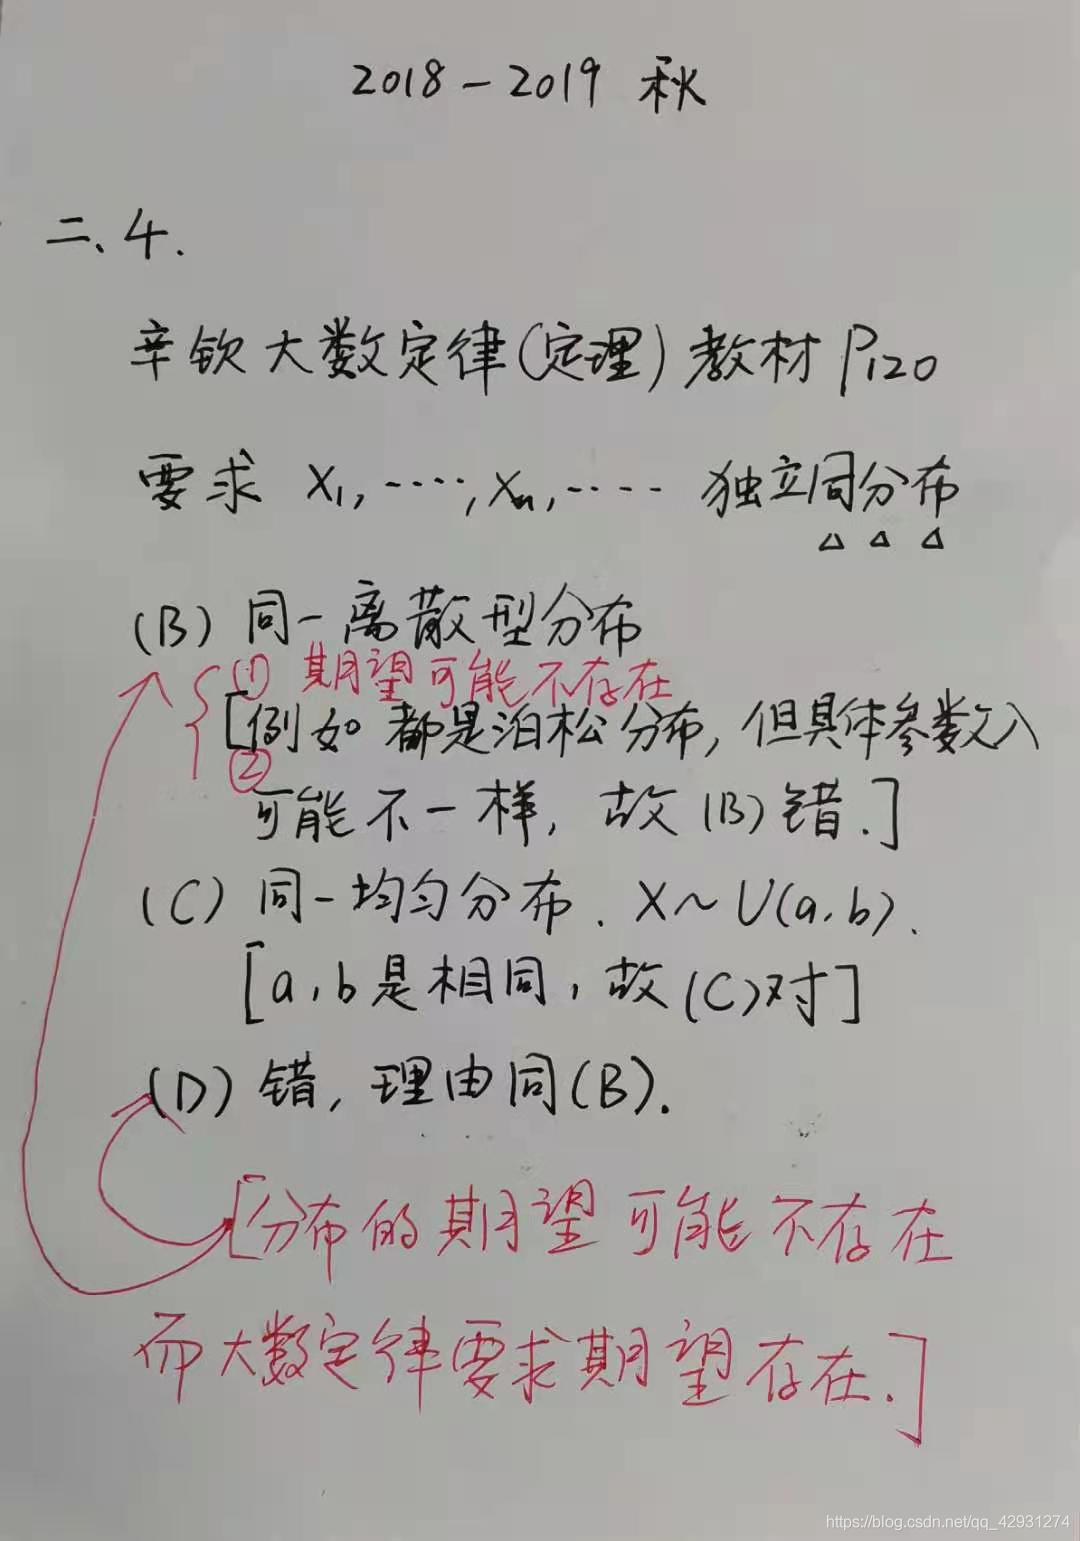 2018-2019 秋
二、4.
辛钦大数定律(定理) 教材 P120
要求 X1, ····, Xn, ···· 独立同分布
(B) 同一离散型分布
(1) 期望可能不存在
[例如 都是泊松分布, 但具体参数入
(2)
可能不一样, 故(B)错.]
(C) 同一均匀分布. X~U(a,b).
[a,b是相同, 故(C)对]
(D) 错, 理由同(B).
[分布的期望可能不存在
而大数定律要求期望存在.]
https://blog.csdn.net/qq_42931274